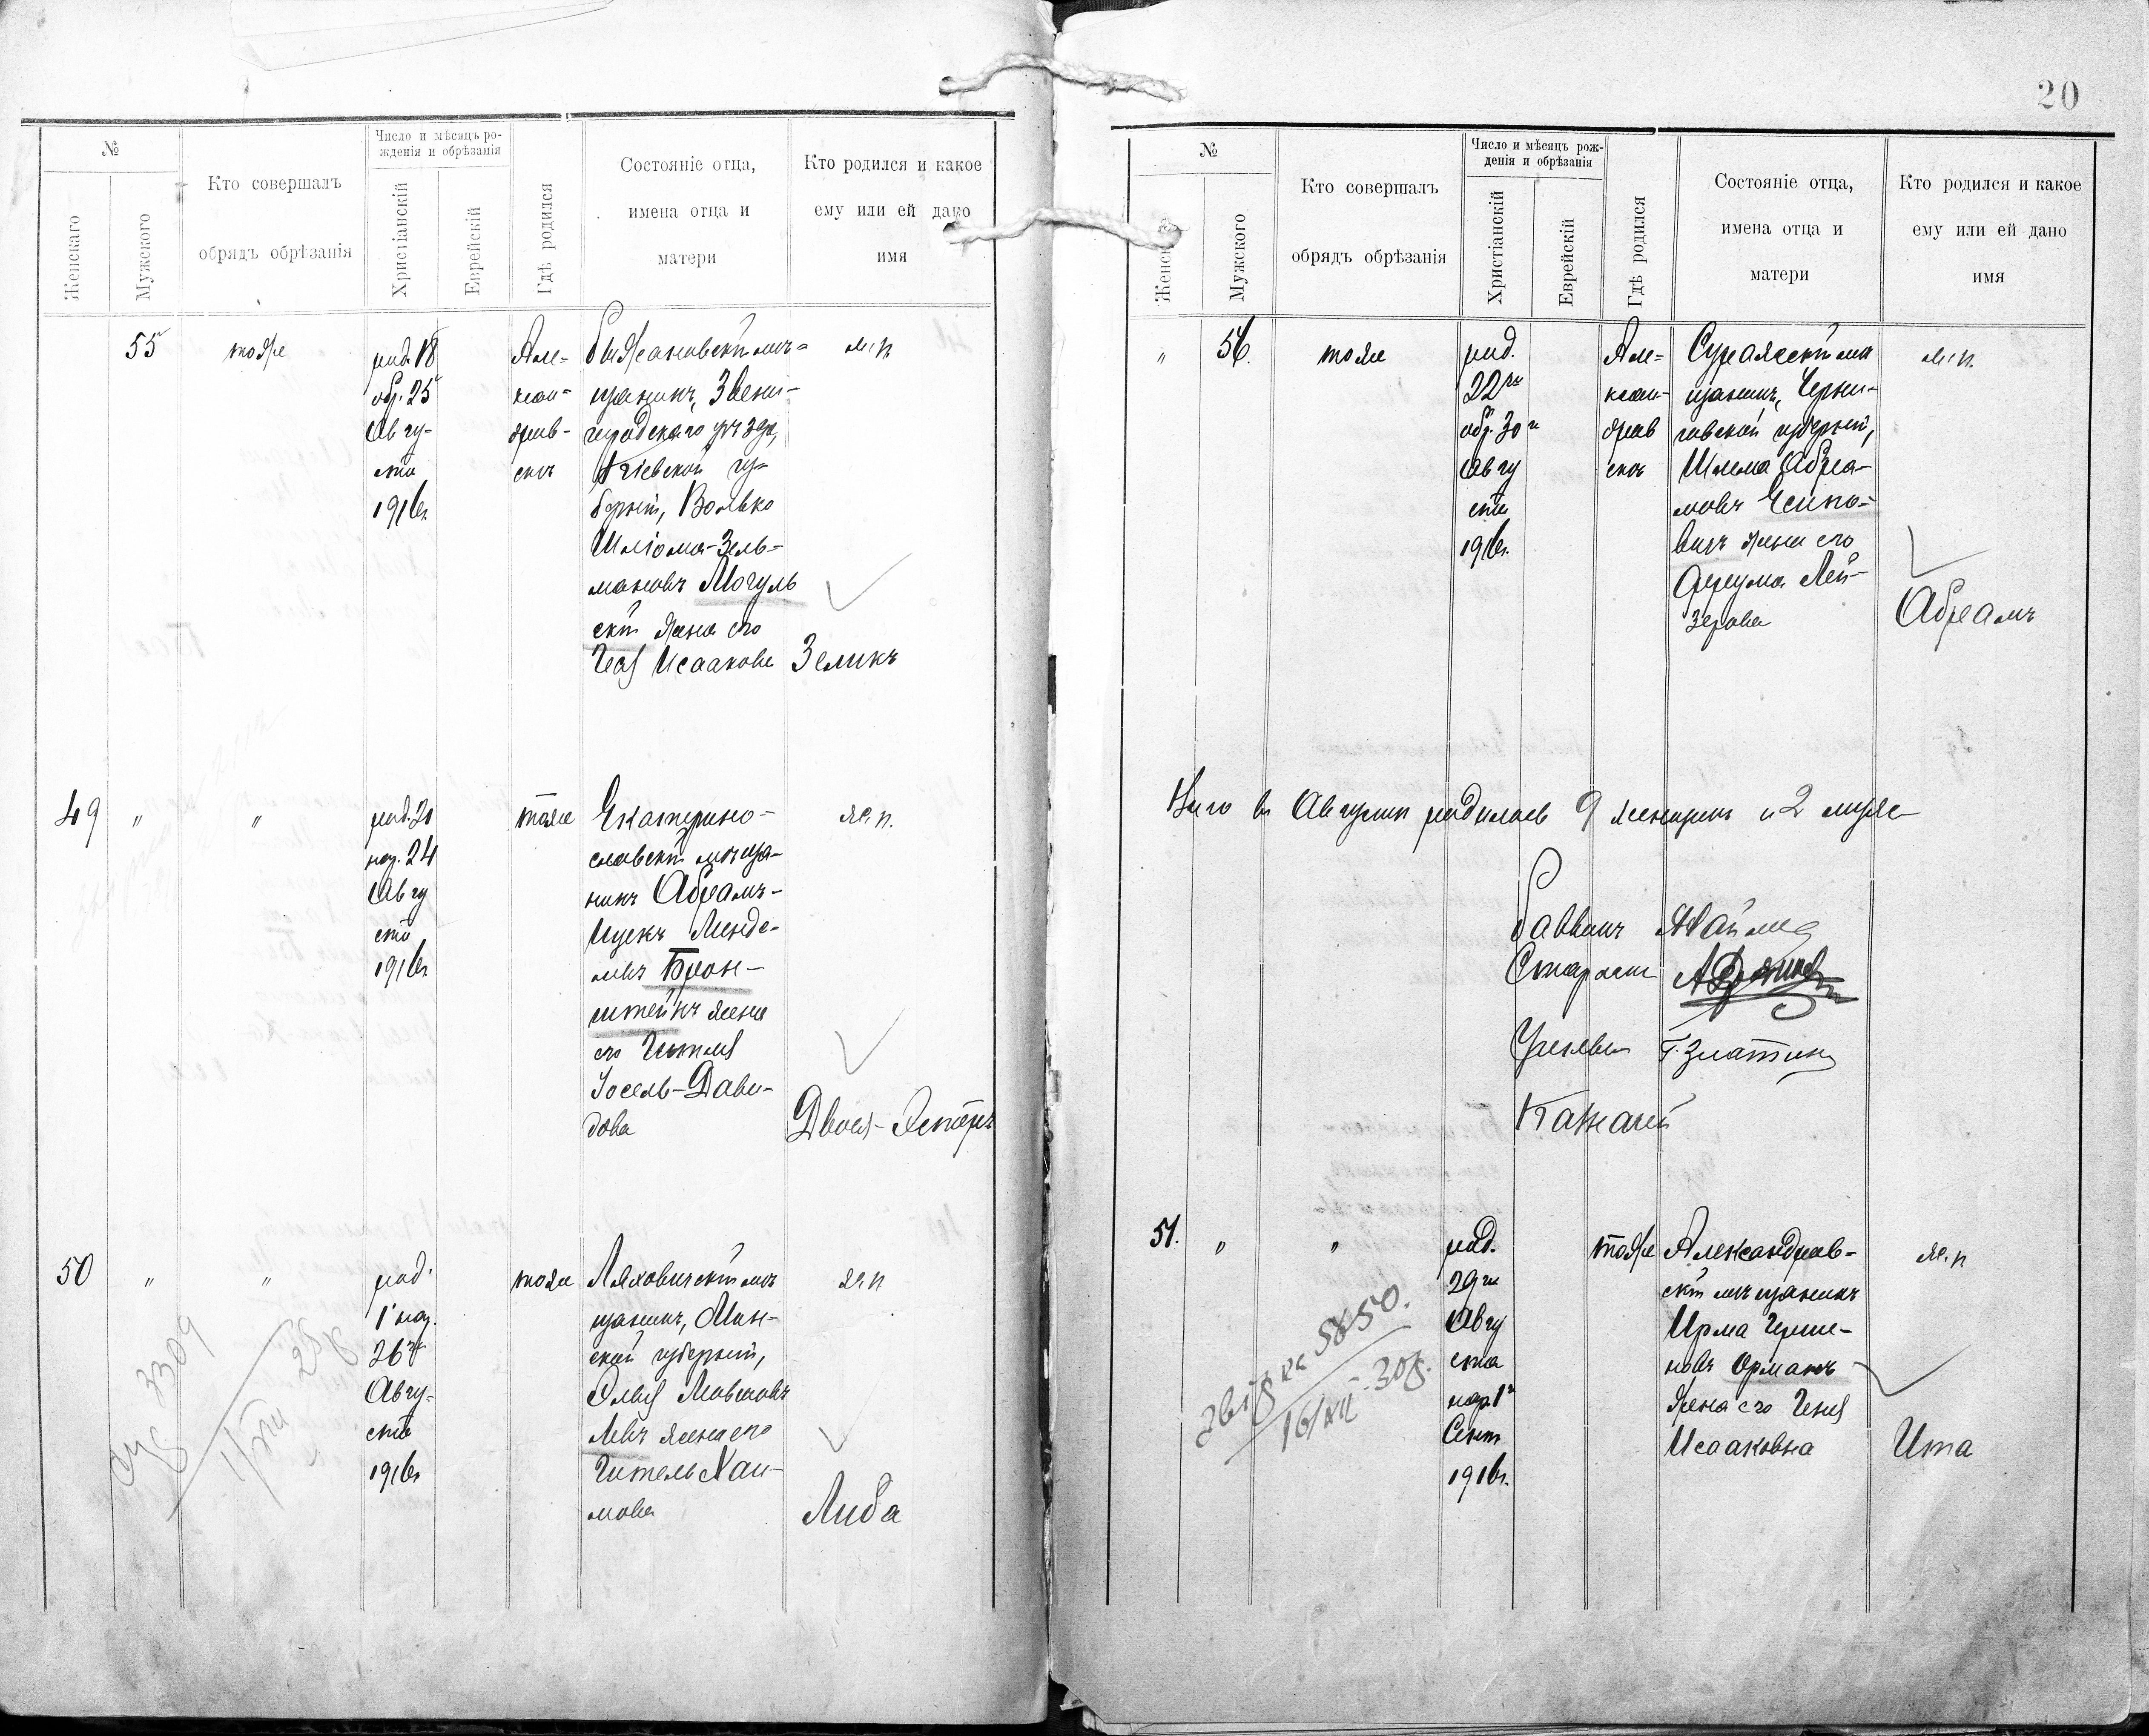 №
Женскаго
Мужского
Кто совершалъ
обрядъ обрѣзанія
Число и мѣсяцъ ро-
жденія и обрѣзанія
Христіанскій
Еврейскій
Гдѣ родился
Состояніе отца,
имена отца и
матери
Кто родился и какое
ему или ей дано
имя
55
тоже
род. 18
обр. 25
Авгу-
ста
1916г.
Але-
ксан-
дров-
скъ
мѣ-
щанинъ, Звени-
городскаго уѣзда,
Кіевской гу-
берніи, Волько
Шліома-Зель-
мановъ Могуль
скій жена его
Исаакова
м. п.
Зеликъ
49
"
"
род. 20
нар. 24
Авгу
ста
1916г.
тоже
Екатерино-
славскій мѣща-
нинъ Абрамъ-
Ицекъ Менде-
левъ Брон-
штейнъ жена
его Гитля
Іосель-Дави-
дова
ж. п.
Двося-Эстеръ
50
"
"
род.
нар.
26го
Авгу-
ста
1916г.
тоже
Ляховичскій мѣ
щанинъ, Мин-
ской губерніи,
Элья Мовшовъ
Левъ жена его
Гитель Хаи-
мова
ж. п.
Либа
3309
20
№
Женскаго
Мужского
Кто совершалъ
обрядъ обрѣзанія
Число и мѣсяцъ рож-
денія и обрѣзанія
Христіанскій
Еврейскій
Гдѣ родился
Состояніе отца,
имена отца и
матери
Кто родился и какое
ему или ей дано
имя
"
56.
тоже
род.
22го
обр. 30го
Авгу
ста
1916г.
Але-
ксан-
дров
скъ
Суражскій мѣ
щанинъ, Черни-
говской губерніи,
Шлема Абра-
мовъ
жена его
Фрума Лей-
зерова
м. п.
Абрамъ
Итого въ Августѣ родилось 9 женщинъ и 2 муж.
Раввинъ
Староста
Г. Златкинъ
Казначей
51.
"
"
род.
29го
Авгу
ста
нар. 1го
Сент.
1916г.
тоже
Александров-
скій мѣщанинъ
Ирма Герше-
новъ Орманъ
жена его Геня
Исааковна
ж. п.
Ита
5850.
16/XII-30г.